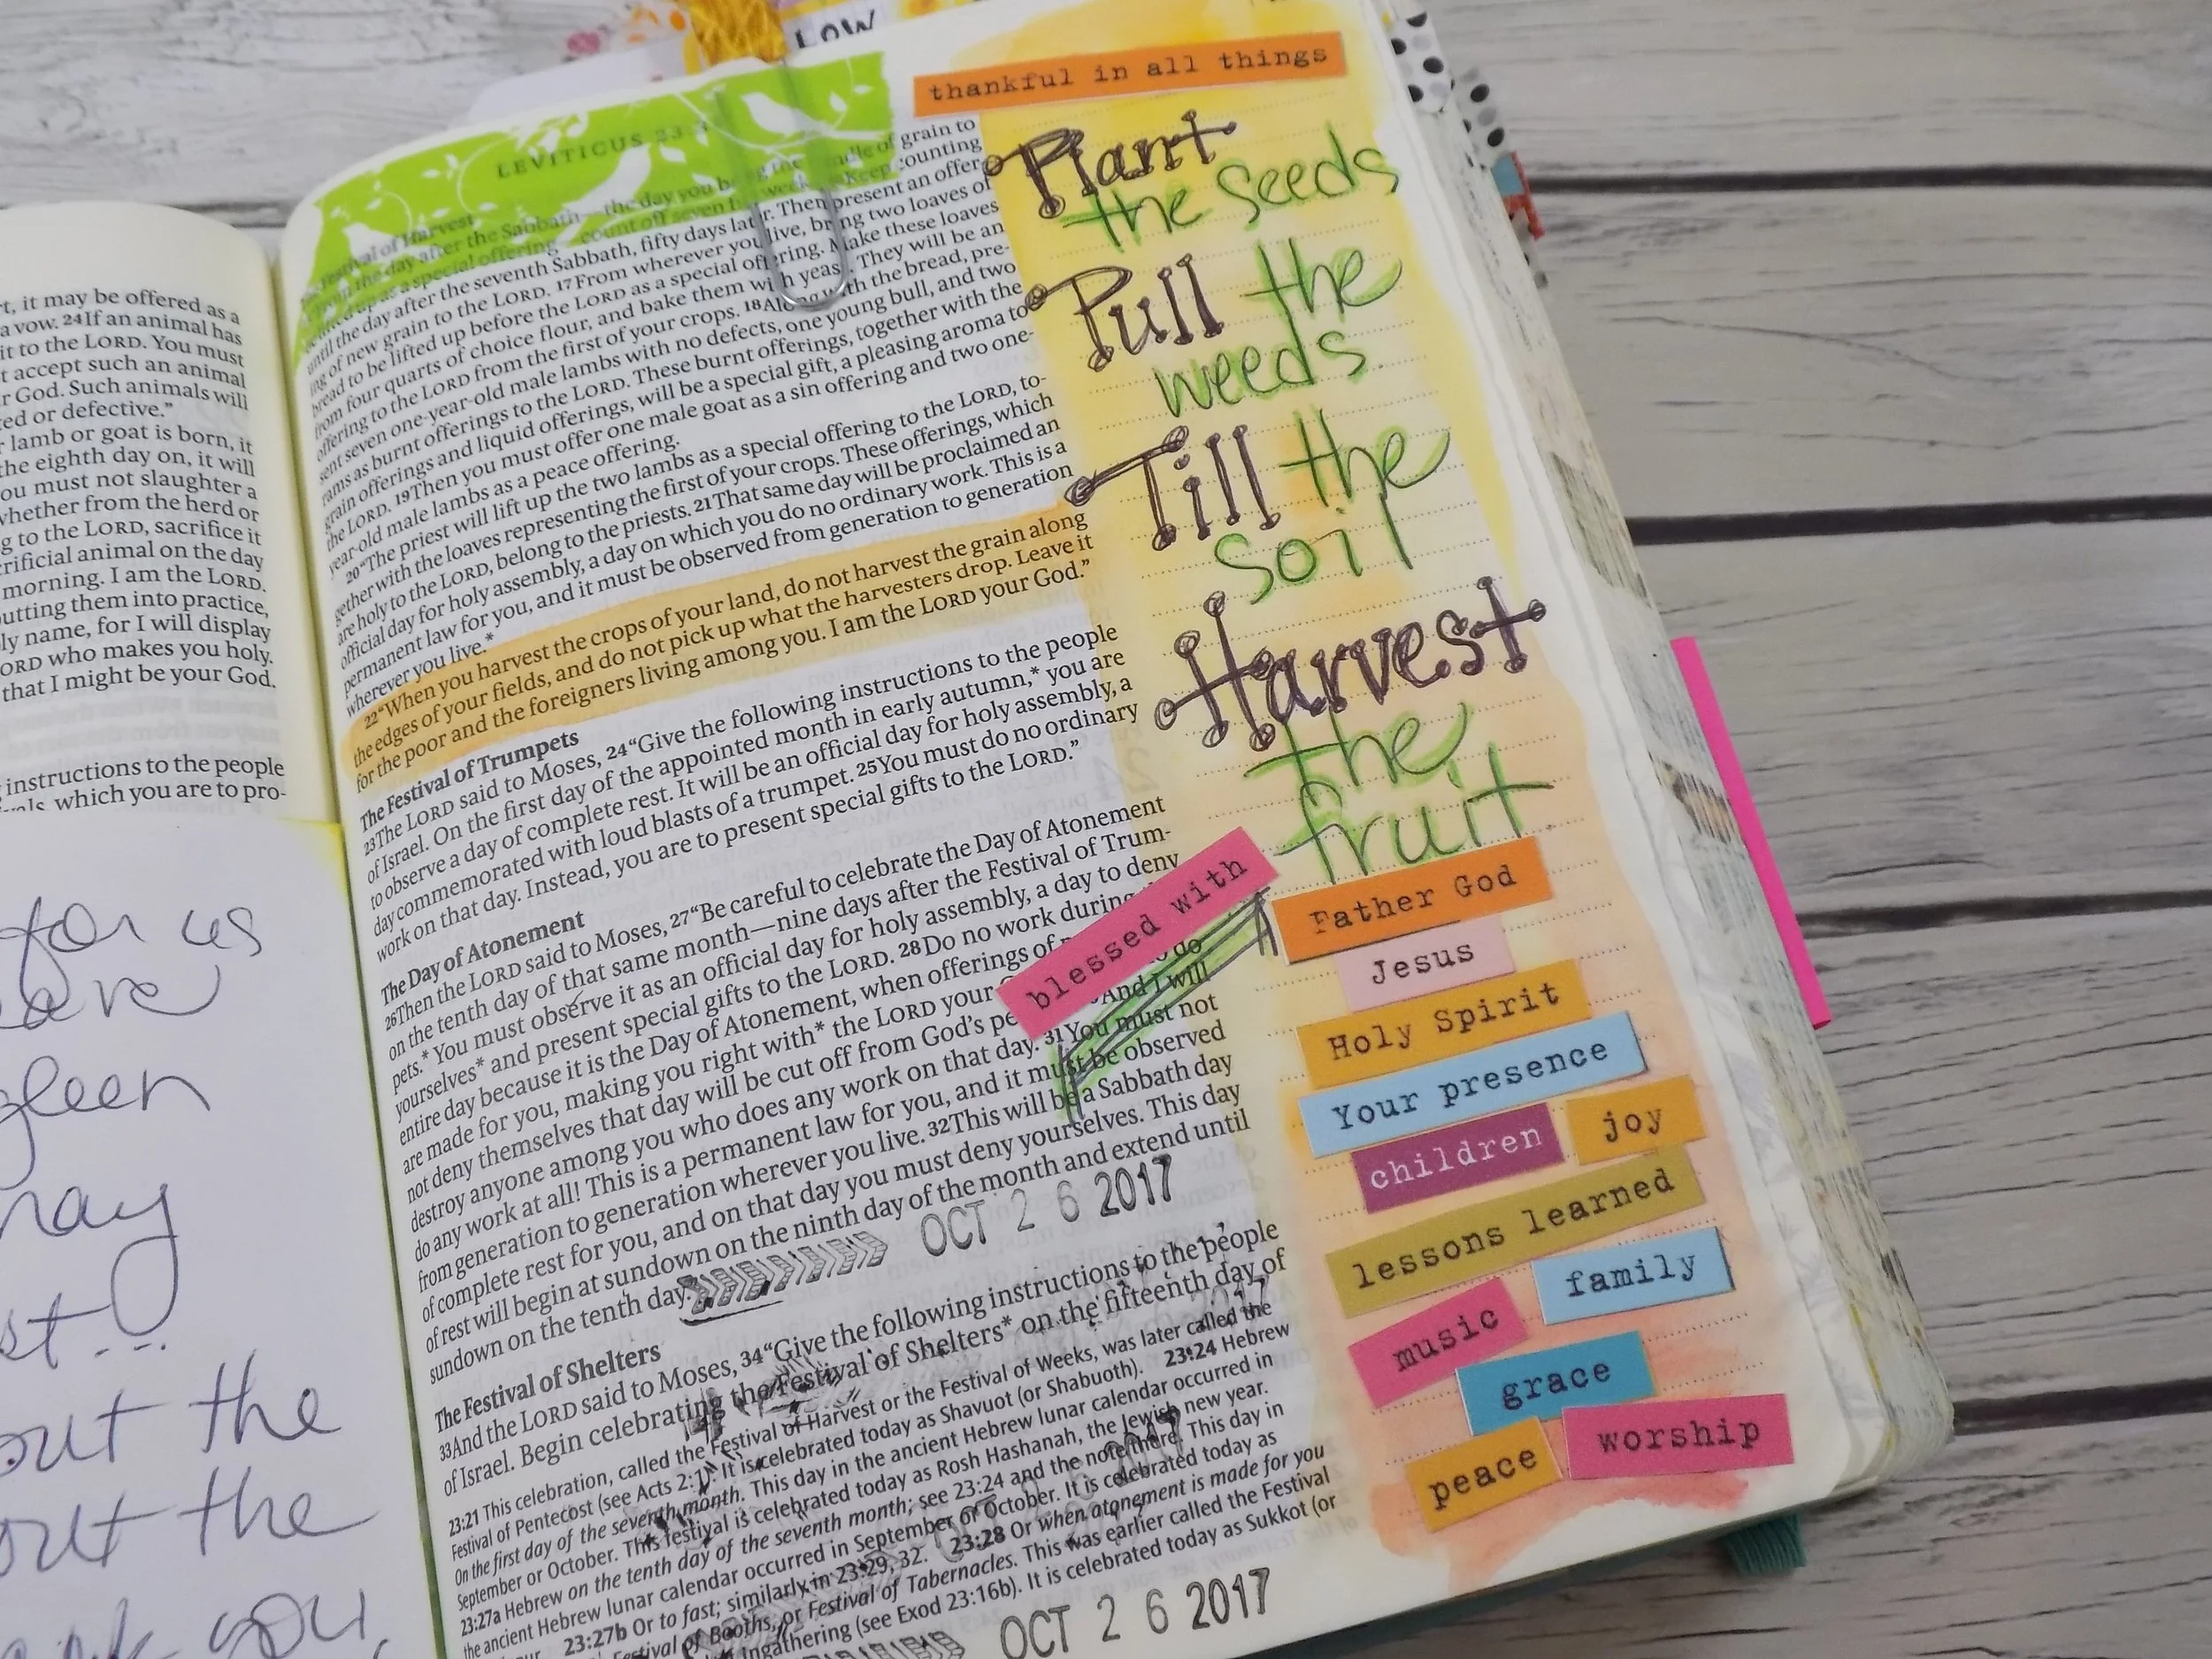 LOW
t, it may be offered as a
a vow. 24If an animal has
it to the LORD. You must
t accept such an animal
r God. Such animals will
ted or defective.”
lamb or goat is born, it
the eighth day on, it will
ou must not slaughter a
whether from the herd or
g to the LORD, sacrifice it
rificial animal on the day
morning. I am the LORD.
utting them into practice,
ly name, for I will display
ORD who makes you holy.
that I might be your God.
instructions to the people
which you are to pro-
for us
gleen
may
out the
out the
you
LEVITICUS 23
Festival of Harvest
the day after the Sabbath—the day you bring the bundle of grain to
be lifted up as a special offering— count off seven weeks. Keep counting
until the day after the seventh Sabbath, fifty days later. Then present an offer-
ing of new grain to the LORD. 17From wherever you live, bring two loaves of
bread to be lifted up before the LORD as a special offering. Make these loaves
from four quarts of choice flour, and bake them with yeast. They will be an
offering to the LORD from the first of your crops. 18Along with the bread, pre-
sent seven one-year-old male lambs with no defects, one young bull, and two
rams as burnt offerings to the LORD. These burnt offerings, together with the
grain offerings and liquid offerings, will be a special gift, a pleasing aroma to
the LORD. 19Then you must offer one male goat as a sin offering and two one-
year-old male lambs as a peace offering.
20“The priest will lift up the two lambs as a special offering to the LORD, to-
gether with the loaves representing the first of your crops. These offerings, which
are holy to the LORD, belong to the priests. 21That same day will be proclaimed an
official day for holy assembly, a day on which you do no ordinary work. This is a
permanent law for you, and it must be observed from generation to generation
wherever you live.*
22“When you harvest the crops of your land, do not harvest the grain along
the edges of your fields, and do not pick up what the harvesters drop. Leave it
for the poor and the foreigners living among you. I am the LORD your God.”
The Festival of Trumpets
23The LORD said to Moses, 24“Give the following instructions to the people
of Israel. On the first day of the appointed month in early autumn,* you are
to observe a day of complete rest. It will be an official day for holy assembly, a
day commemorated with loud blasts of a trumpet. 25You must do no ordinary
work on that day. Instead, you are to present special gifts to the LORD.”
The Day of Atonement
26Then the LORD said to Moses, 27“Be careful to celebrate the Day of Atonement
on the tenth day of that same month—nine days after the Festival of Trum-
pets.* You must observe it as an official day for holy assembly, a day to deny
yourselves* and present special gifts to the LORD. 28Do no work during
entire day because it is the Day of Atonement, when offerings of
are made for you, making you right with* the LORD your do
not deny themselves that day will be cut off from God’s pe And I will
destroy anyone among you who does any work on that day. 31You must not
do any work at all! This is a permanent law for you, and it must be observed
from generation to generation wherever you live. 32This will be a Sabbath day
of complete rest for you, and on that day you must deny yourselves. This day
of rest will begin at sundown on the ninth day of the month and extend until
sundown on the tenth day.
OCT 2 6 2017
The Festival of Shelters
33And the LORD said to Moses, 34“Give the following instructions to the people
of Israel. Begin celebrating the Festival of Shelters* on the fifteenth day of
23:21 This celebration, called the Festival of Harvest or the Festival of Weeks, was later called the
Festival of Pentecost (see Acts 2:1). It is celebrated today as Shavuot (or Shabuoth). 23:24 Hebrew
On the first day of the seventh month. This day in the ancient Hebrew lunar calendar occurred in
September or October. This festival is celebrated today as Rosh Hashanah, the Jewish new year.
23:27a Hebrew on the tenth day of the seventh month; see 23:24 and the note there. This day in
the ancient Hebrew lunar calendar occurred in September or October. It is celebrated today as
23:27b Or to fast; similarly in 23:29, 32. 23:28 Or when atonement is made for you
Festival of Booths, or Festival of Tabernacles. This was earlier called the Festival
Ingathering (see Exod 23:16b). It is celebrated today as Sukkot (or
OCT 2 6 2017
thankful in all things
Plant
the seeds
Pull the
weeds
Till the
soil
Harvest
the
fruit
blessed with
Father God
Jesus
Holy Spirit
Your presence
children joy
lessons learned
family
music
grace
peace worship